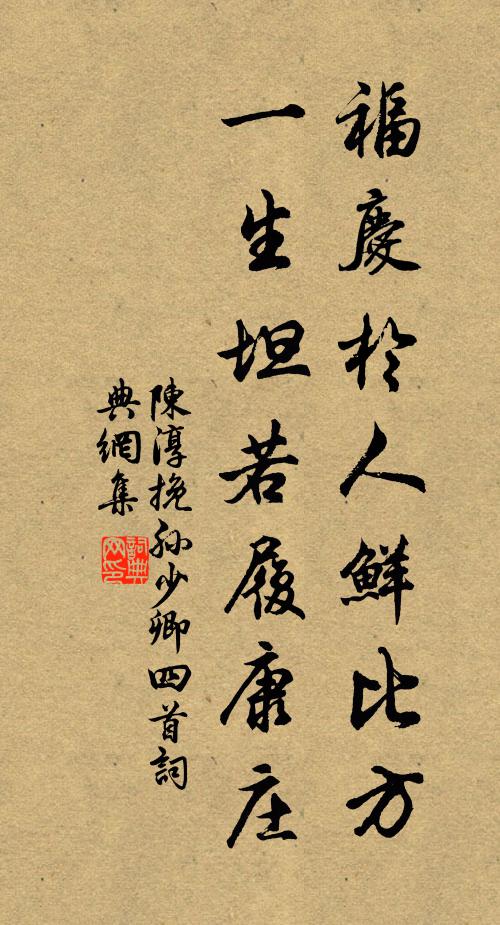 福慶於人鮮比方
一生坦若履康庄
陳淳挽孫少卿四首詞
典網集
詞典
网印